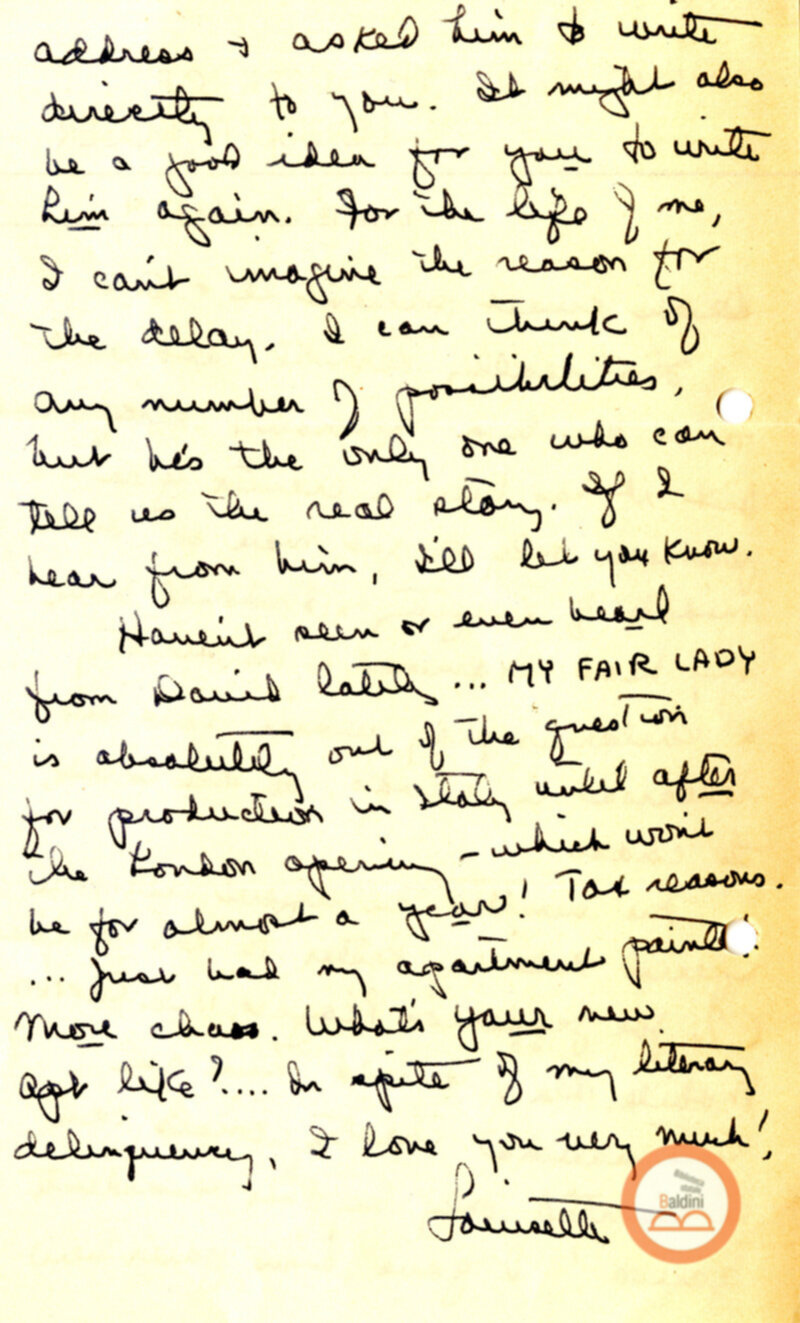 address & asked him to write
directly to you. It might also
be a good idea for you to write
him again. For the life of me,
I can't imagine the reason for
the delay. I can think of
any number of possibilities,
but he's the only one who can
tell us the real story. If I
hear from him, I'll let you know.
Haven't seen or even heard
from David lately ... MY FAIR LADY
is absolutely out of the question
for production in Italy until after
the London opening - which won't
be for almost a year! Tax reasons.
... Just had my apartment painted!
More chaos. What's your new
apt like?.... In spite of my literary
delinquency, I love you very much!,
Biblioteca
statale
Baldini